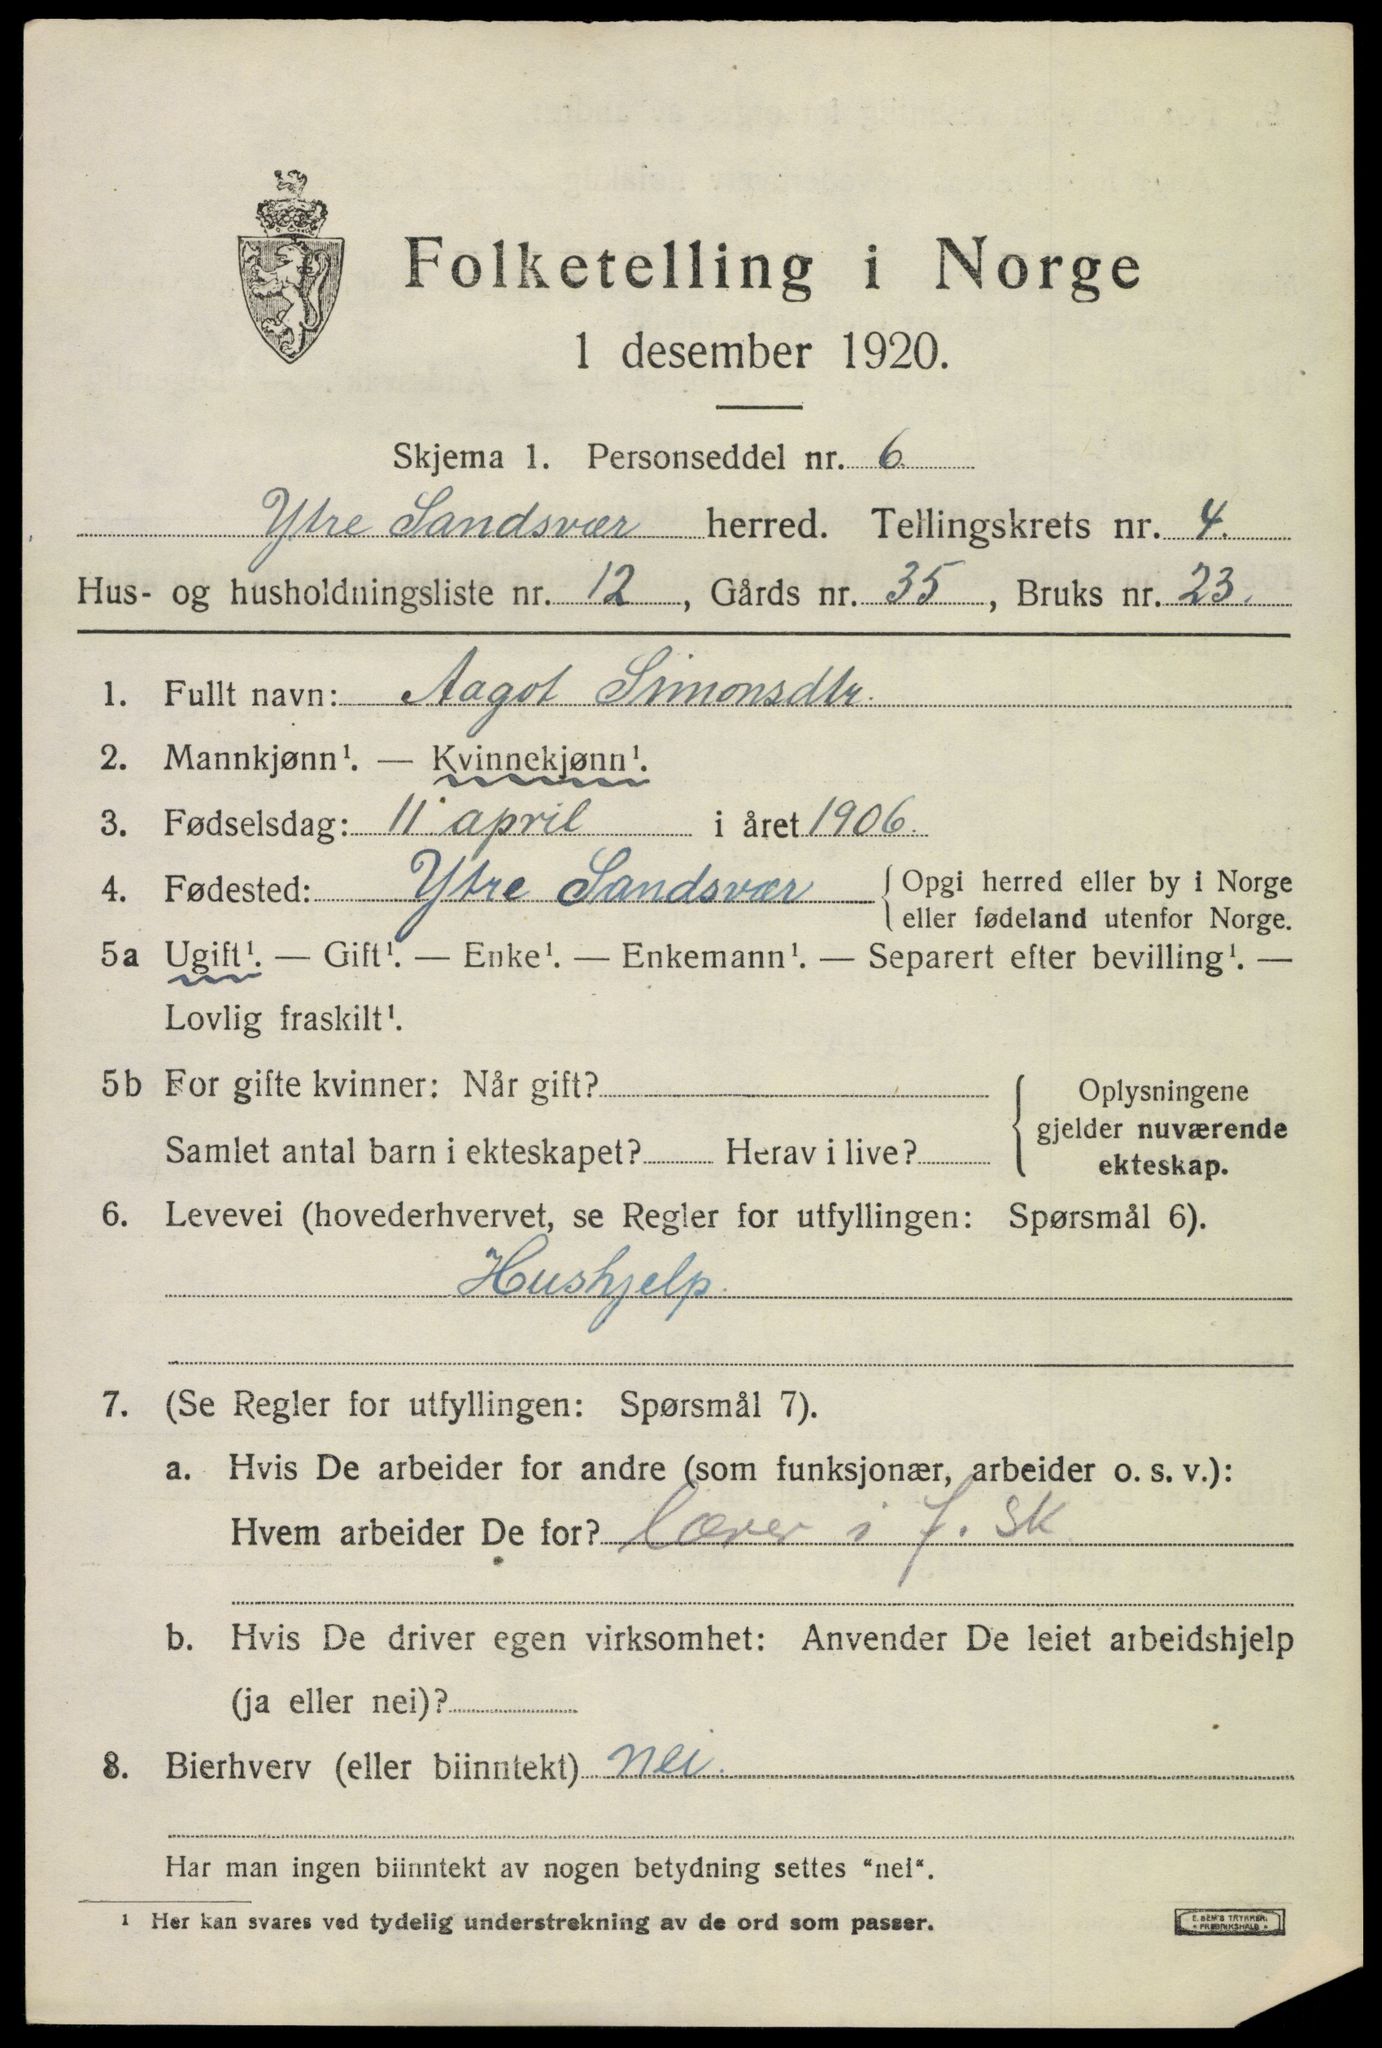 Folketelling i Norge
1 desember 1920.
Skjema 1. Personseddel nr. 6
Ytre Sandsvær herred. Tellingskrets nr. 4.
Hus- og husholdningsliste nr. 12, Gårds nr. 35, Bruks nr. 23.
1. Fullt navn: Aagot Simonsdtr.
2. Mannkjønn¹. — Kvinnekjønn¹.
3. Fødselsdag: 11 april i året 1906.
4. Fødested: Ytre Sandsvær { Opgi herred eller by i Norge
eller fødeland utenfor Norge.
5a Ugift¹. — Gift¹. — Enke¹. — Enkemann¹. — Separert efter bevilling¹. —
Lovlig fraskilt¹.
5b For gifte kvinner: Når gift?
Samlet antal barn i ekteskapet? Herav i live?
Oplysningene
gjelder nuværende
ekteskap.
6. Levevei (hovederhvervet, se Regler for utfyllingen: Spørsmål 6).
Hushjelp.
7. (Se Regler for utfyllingen: Spørsmål 7).
a. Hvis De arbeider for andre (som funksjonær, arbeider o. s. v.):
Hvem arbeider De for? lærer i f. sk
b. Hvis De driver egen virksomhet: Anvender De leiet arbeidshjelp
(ja eller nei)?
8. Bierhverv (eller biinntekt) nei.
Har man ingen biinntekt av nogen betydning settes "nei".
¹ Her kan svares ved tydelig understrekning av de ord som passer.
E. SEM'S TRYKKERI
FREDRIKSHALD